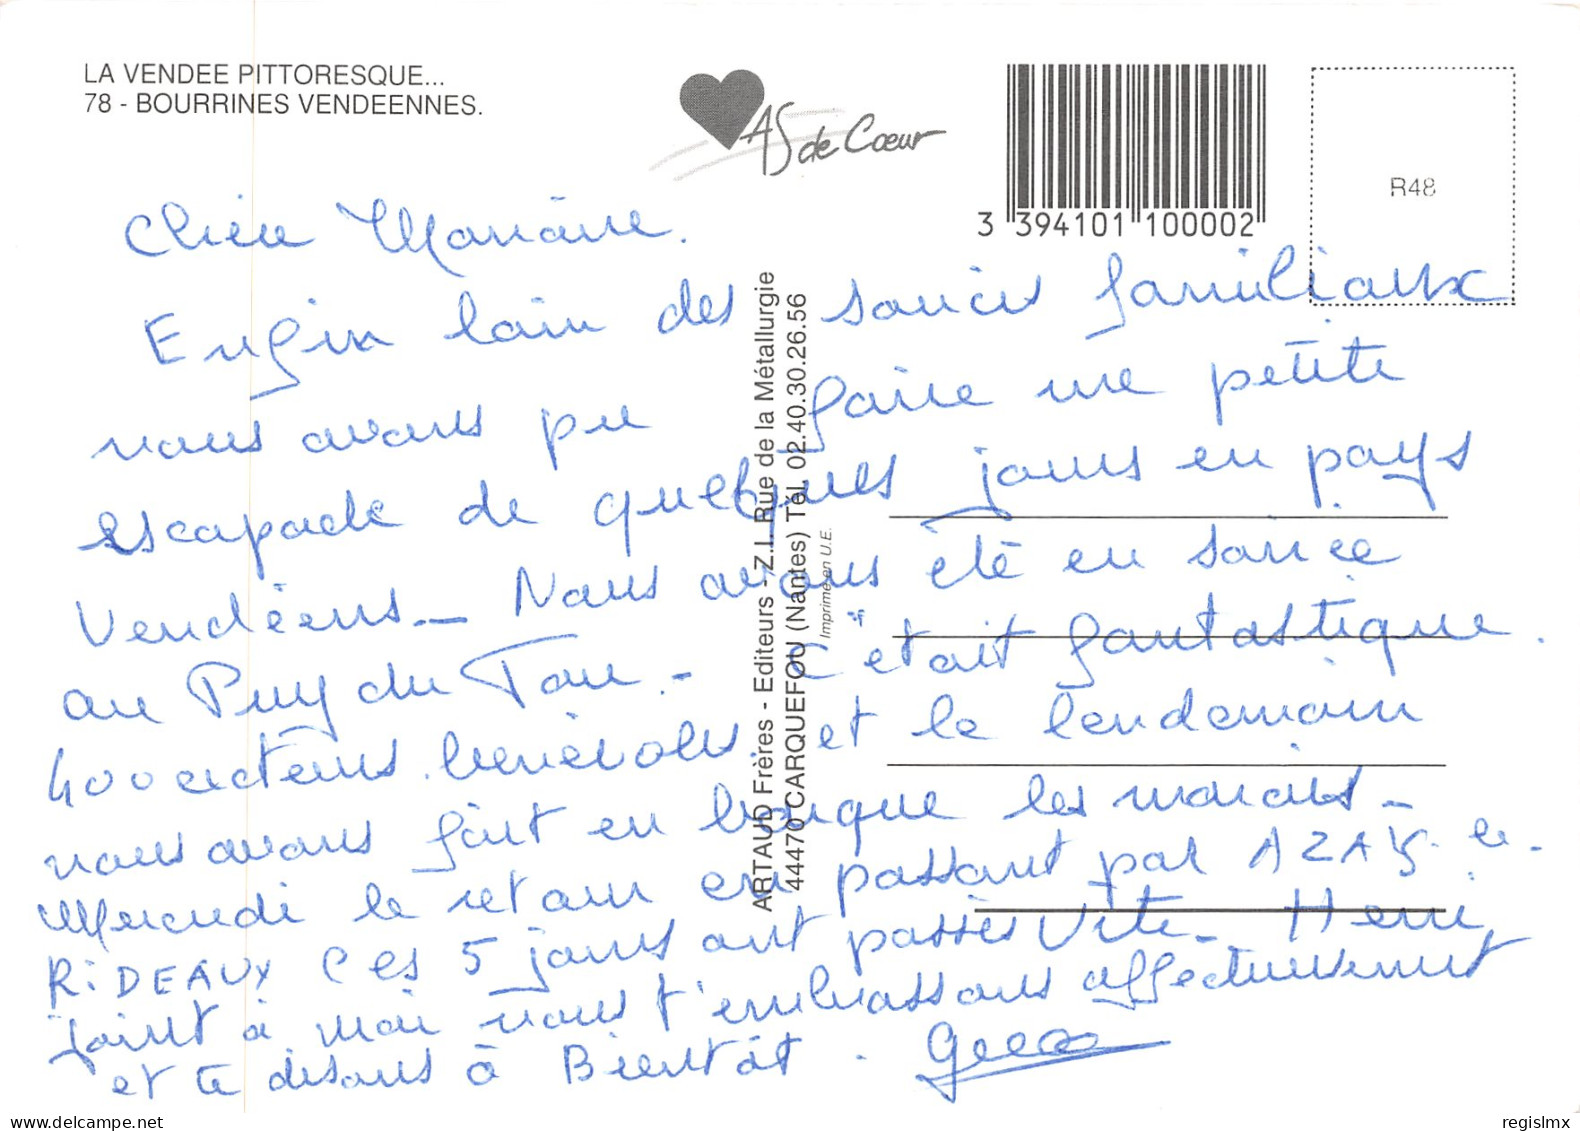 LA VENDEE PITTORESQUE...
78 - BOURRINES VENDEENNES.
AS de Cœur
3 394101 100002
R48
Chère
Enfin loin des soucis familiaux
nous avons pu faire une petite
escapade de quelques jours en pays
Vendéens_ Nous avons été en soirée
au Puy du Fou. - c'était fantastique.
400 acteurs bénévoles. et le lendemain
nous avons fait en barque les marais -
Mercredi le retour en passant par AZAY. le.
RiDEAUX Ces 5 jours ont passés Vite_ Henri
joint à moi nous t'embrassons affectueusement
et te disons à Bientôt.
ARTAUD Frères - Editeurs - Z.I. Rue de la Métallurgie
44470 CARQUEFOU (Nantes) Tél. 02.40.30.26.56
Imprimé en U.E.
delcampe.net
regislmx